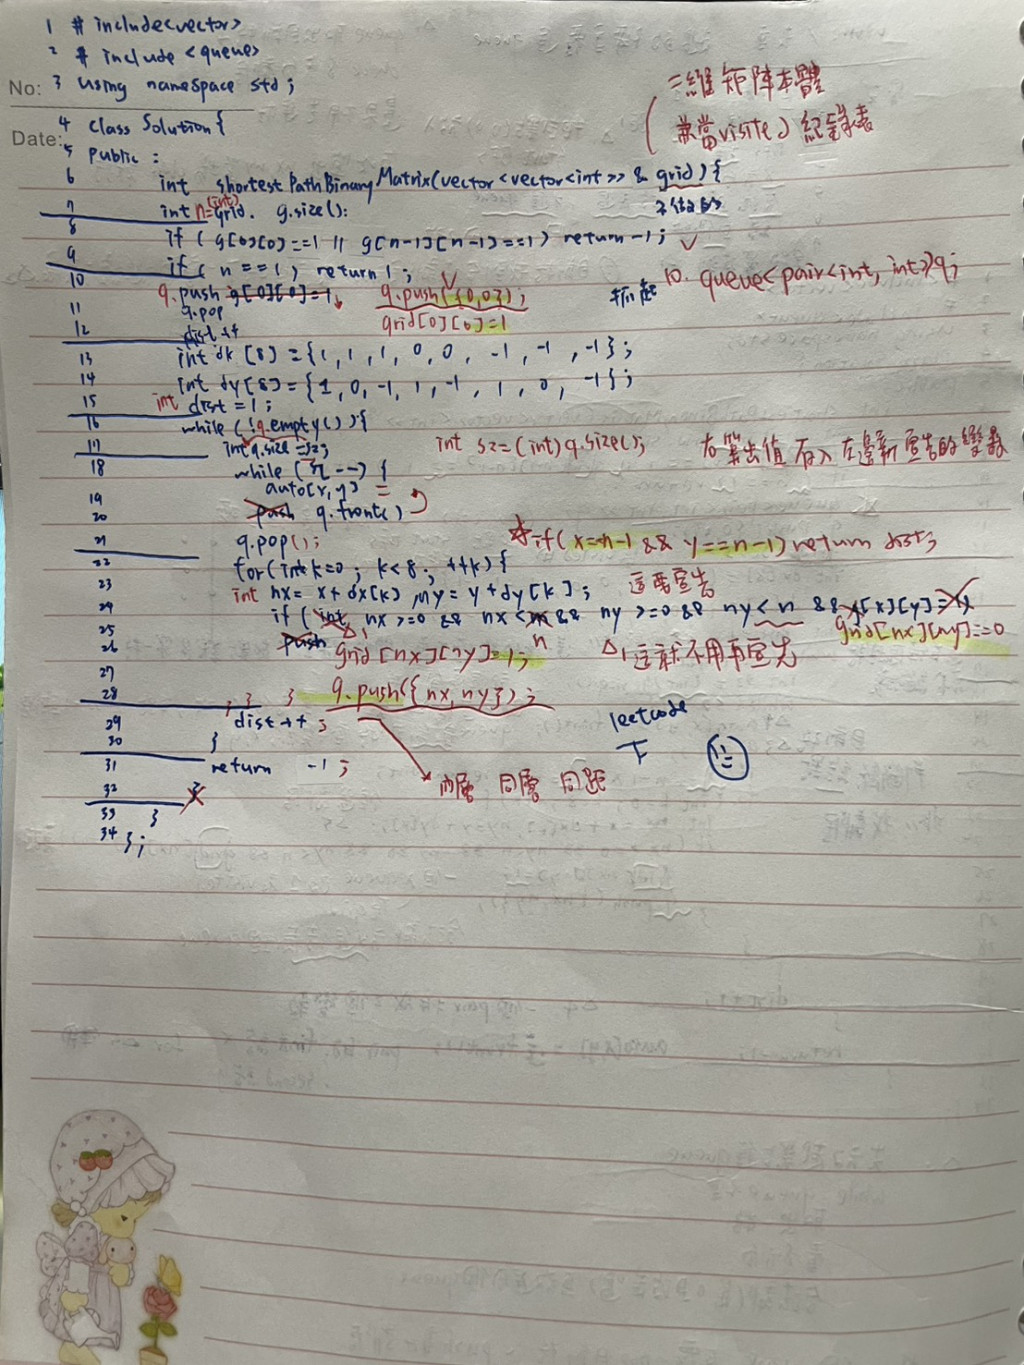 1 # include<vector>
2 # include <queue>
No: 3 using namespace std;
二維矩阵本體
Date: 4 class Solution{
(兼當visite) 紀錄表
5 public :
6 int shortestPathBinaryMatrix(vector<vector<int>> & grid){
7 int n=(int)grid. g.size();
8 if ( g[0][0]==1 || g[n-1][n-1]==1) return -1; ✓
9 if( n==1) return 1;
10 q.push g[0][0]=1, q.push({0,0}); 10. queue<pair<int, int>>q;
11 q.pop grid[0][0]=1
12 dist++
13 int dx[8] ={1, 1, 1, 0, 0, -1, -1, -1};
14 int dy[8]={1, 0, -1, 1, -1, 1, 0, -1};
15 int dist =1;
16 while (!q.empty()){
17 int q.size =sz; int sz=(int)q.size(); 右算出值 存入 左邊新宣告的變數
18 while ( --) {
19 auto[x,y] =
20 push q.front()
21 q.pop(); if( x==n-1 && y==n-1) return dist;
22 for(int k=0; k<8; ++k){
23 int nx= x+dx[k], ny= y+dy[k]; 這要宣告
24 if ( int nx >=0 && nx < && ny >=0 && ny<n && [x][y]=
25 push △1 n grid[nx][ny]==0
26 grid[nx][ny]=1; △1 這就不用再宣告
27
28 } } } q.push({nx,ny});
29 dist++; leetcode
30 } 下
31 return -1;
32 } 內層 同層 同距
33 }
34 };